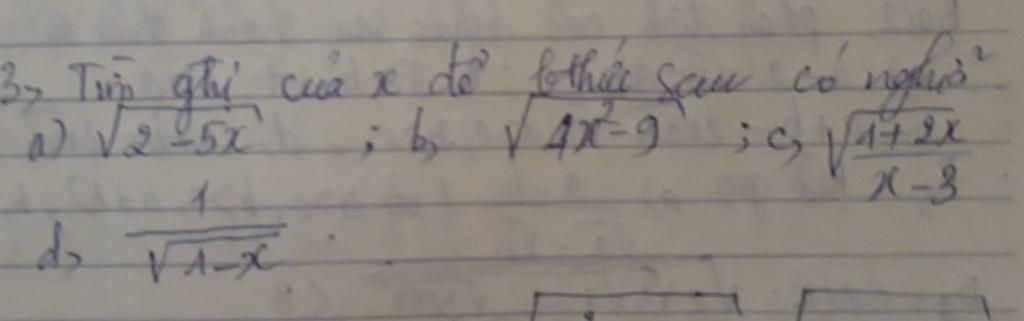 3, Tìm gtrị của x để bthức sau có nghĩa
a) √(2-5x) ; b, √(4x²-9) ; c, √((1+2x)/(x-3))
d, 1/√(1-x)